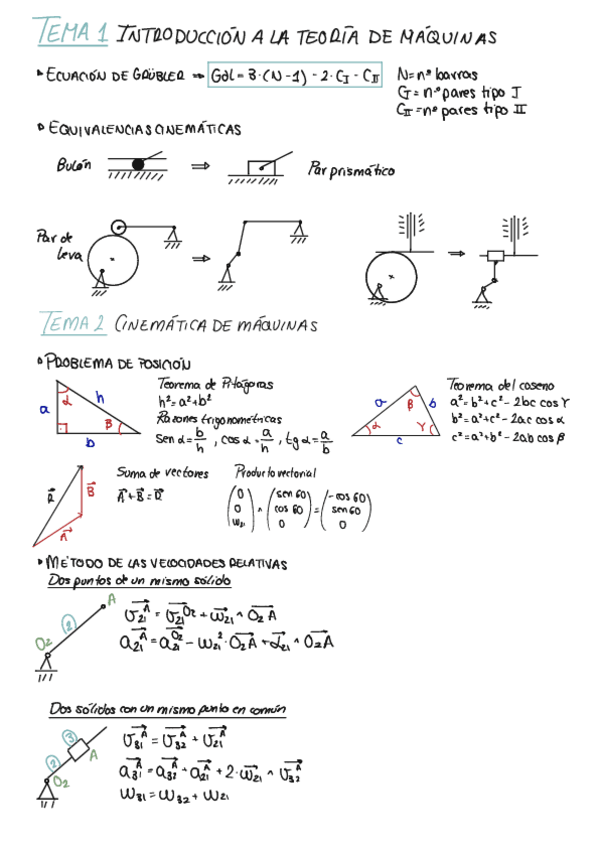 TEMA 1 INTRODUCCIÓN A LA TEORÍA DE MÁQUINAS
ECUACIÓN DE GRÜBLER ⇒ Gdl = 3·(N-1) - 2·C_I - C_II
N = nº barras
C_I = nº pares tipo I
C_II = nº pares tipo II
EQUIVALENCIAS CINEMÁTICAS
Bulón ⇒ Par prismático
Par de leva ⇒ →
TEMA 2 CINEMÁTICA DE MÁQUINAS
PROBLEMA DE POSICIÓN
a h b α β
Teorema de Pitágoras
h² = a² + b²
Razones trigonométricas
sen α = b/h , cos α = a/h , tg α = a/b
a b c α β γ
Teorema del coseno
a² = b² + c² - 2bc cos γ
b² = a² + c² - 2ac cos α
c² = a² + b² - 2ab cos β
R B A
Suma de vectores
A + B = R
Producto vectorial
(0 0 ω21) ^ (sen 60 cos 60 0) = (-cos 60 sen 60 0)
MÉTODO DE LAS VELOCIDADES RELATIVAS
Dos puntos de un mismo sólido
O2 2 A
v21^A = v21^O2 + ω21 ^ O2A
a21^A = a21^O2 - ω21² · O2A + α21 ^ O2A
Dos sólidos con un mismo punto en común
2 3 A O2
v31^A = v32^A + v21^A
a31^A = a32^A + a21^A + 2·ω21 ^ v32^A
ω31 = ω32 + ω21